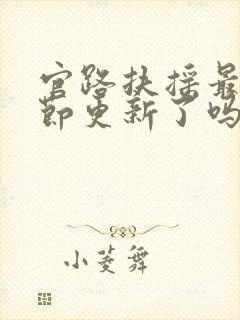 官路扶摇最
节更新了吗
小菱舞